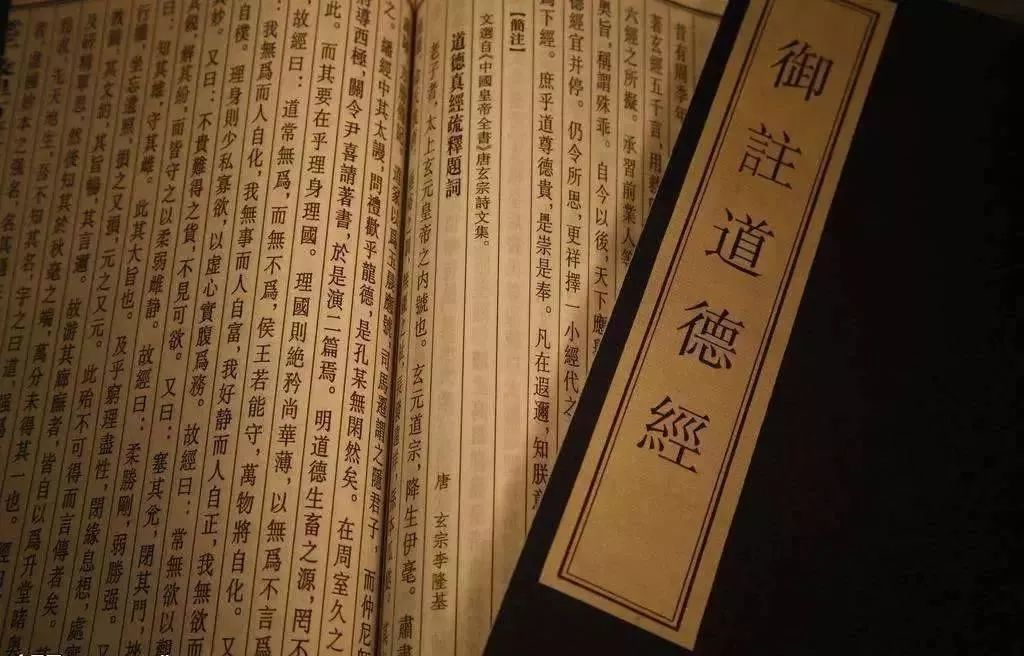 御註道德經
昔有周季年
著玄經五千言，用
六經之所擬。承習前業人等
奧旨，稱謂殊乖。自今以後，天下應
德經宜並停。仍令所思，更祥擇一小經代之
爲下經。庶乎道尊德貴，是崇是奉。凡在遐邇，知朕意
【簡注】
文選自《中國皇帝全書》唐玄宗詩文集。
道德真經疏釋題詞
唐 玄宗李隆基
老子者，太上玄元皇帝之内號也。玄元道宗，降生伊毫。肅肅
司馬遷謂之隱君子，而仲尼
繙經中其太謾，問禮歡乎龍德，是孔某無閑然矣。在周室久之
將導西極，關令尹喜請著書，於是演二篇焉。明道德生畜之源，罔不
此。而其要在乎理身理國。理國則絶矜尚華薄，以無爲不言爲
故經曰：道常無爲，而無不爲，侯王若能守，萬物將自化。又
我無爲而人自化，我無事而人自富，我好静而人自正，我無欲而
自樸。理身則少私寡欲，以虚心實腹爲務。故經曰：常無欲以觀
其妙。又曰：不貴難得之貨，不見可欲。又曰：塞其兌，閉其門，挫
鋭，解其紛，而皆守之以柔弱雌静。故經曰：柔勝剛，弱勝强。
知其雄，守其雌。此其大旨也。及乎窮理盡性，閉緣息想，處實
行權，坐忘遺照，損之又損，元之又元。此殆不可得而言傳者矣。
其文約，其旨暢，其言邇。故游其廊廡者，皆自以爲升堂諸奥
及研精覃思，然後知其於秋毫之端，萬分未得其一也。
先天地生，吾不知其名，字之曰道，强爲
虚極妙本之强名